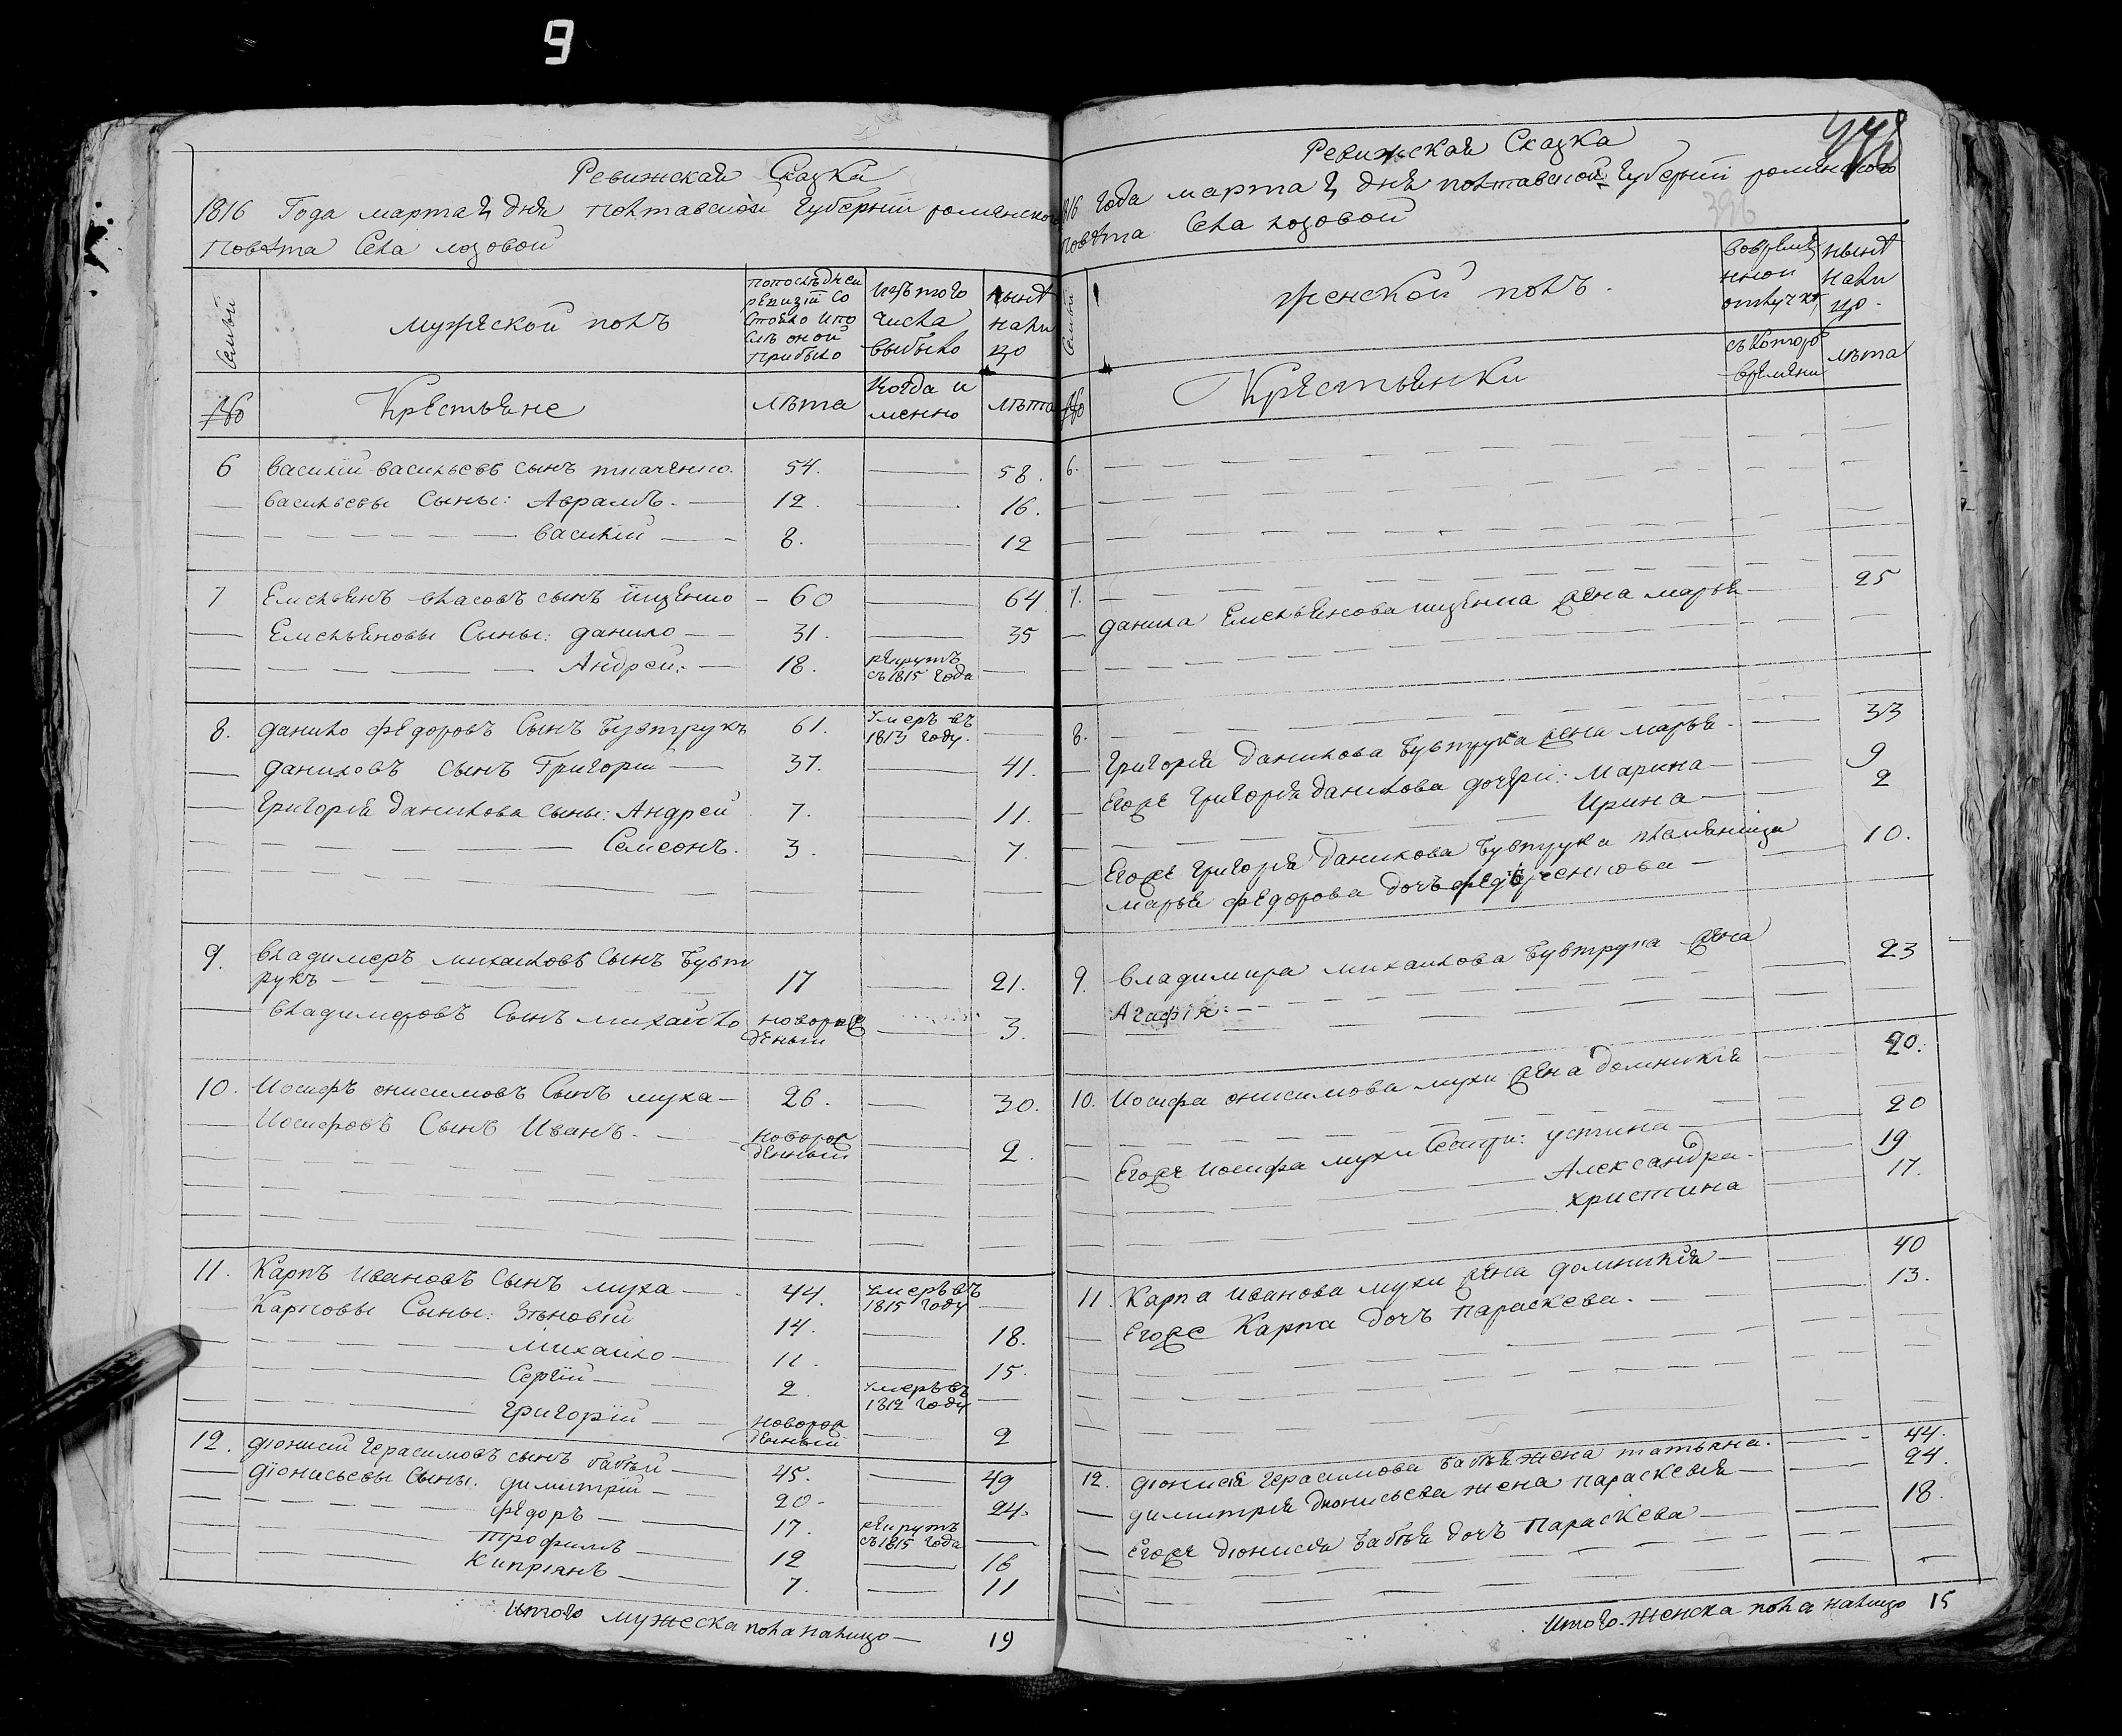 9
Ревижская Сказка
1816 Года марта дня полтавской Губернии роменского
повѣта Села лозовой
Семьи
мужеской полъ
попослѣдней
ревизіи со
стояло ипо
слѣ оной
прибыло
Изъ того
числа
выбыло
нынѣ
нали
цо
№
Крестьяне
лѣта
Когда и
менно
лѣта
6 василій васильевъ сынъ ткаченко. 54. 58.
васильевы Сыны: Аврамъ. 12. 16.
василій 8. 12
7 Емельянъ власовъ сынъ іщенко 60 64
Емельяновы Сыны: данило 31. 35
Андрей: 18. рекрутъ
съ 1815 года
8. данило федоровъ Сынъ Бувтрукъ 61. Умеръ въ
1813 году.
даниловъ сынъ Григорій 37. 41.
Григорія данилова сыны: Андрей 7. 11.
Самсонъ. 3. 7.
9. владимеръ михаиловъ Сынъ Бувт
рукъ 17 21.
владимеровъ Сынъ михайло новорож
деный 3.
10. Иосифъ онисимовъ Сынъ муха 26. 30.
Иосифовъ Сынъ Иванъ. новорож
денный 2.
11. Карпъ ивановъ Сынъ муха 44. Умеръ въ
1815 году
Карповы Сыны: Зѣновій 14. 18.
Михайло 11. 15.
Сергій 2. Умеръ въ
1812 году
Григорій новорож
денный 2
12. діонисій Герасимовъ сынъ бабѣй 45. 49
діонисьевы Сыны: димитрій 20. 24.
Федоръ 17. рекрутъ
съ 1815 года
Трофимъ 12 16
Кипріянъ 7. 11
Итого мужеска пола налицо 19
Ревижская Сказка
1816 года марта дня полтавской Губерніи роменского
повѣта Села лозовой
396
Семьи
женской полъ.
вовреме
нной
отлучкѣ
нынѣ
нали
цо.
съ котор
времени
лѣта
№
Крестьянки
6.
7.
данила Емельянова ищенка жена марья 25
8.
Григорія данилова Бувтрука жена марья. 33
Егоже Григорія данилова дочери: Марина 9
Ирина 2
Егоже Григорія данилова Бувтрука племяница
марья федорова дочь 10.
9. владимира михаилова Бувтрука жена
Агафія: 23
10. Иосифа онисимова мухи жена домникія 20.
Егоже иосифа мухи Сестри: устина 20
Александра. 19
христина 17.
11. Карпа иванова мухи жена домникія 40
Егоже Карпа дочъ Параскева. 13.
12. діонисія герасимова бабѣя жена татьяна. 44.
димитрія дионисьева жена параскевія 24.
Егоже діонисія бабѣя дочъ Параскева 18.
Итого. Женска пола налицо 15